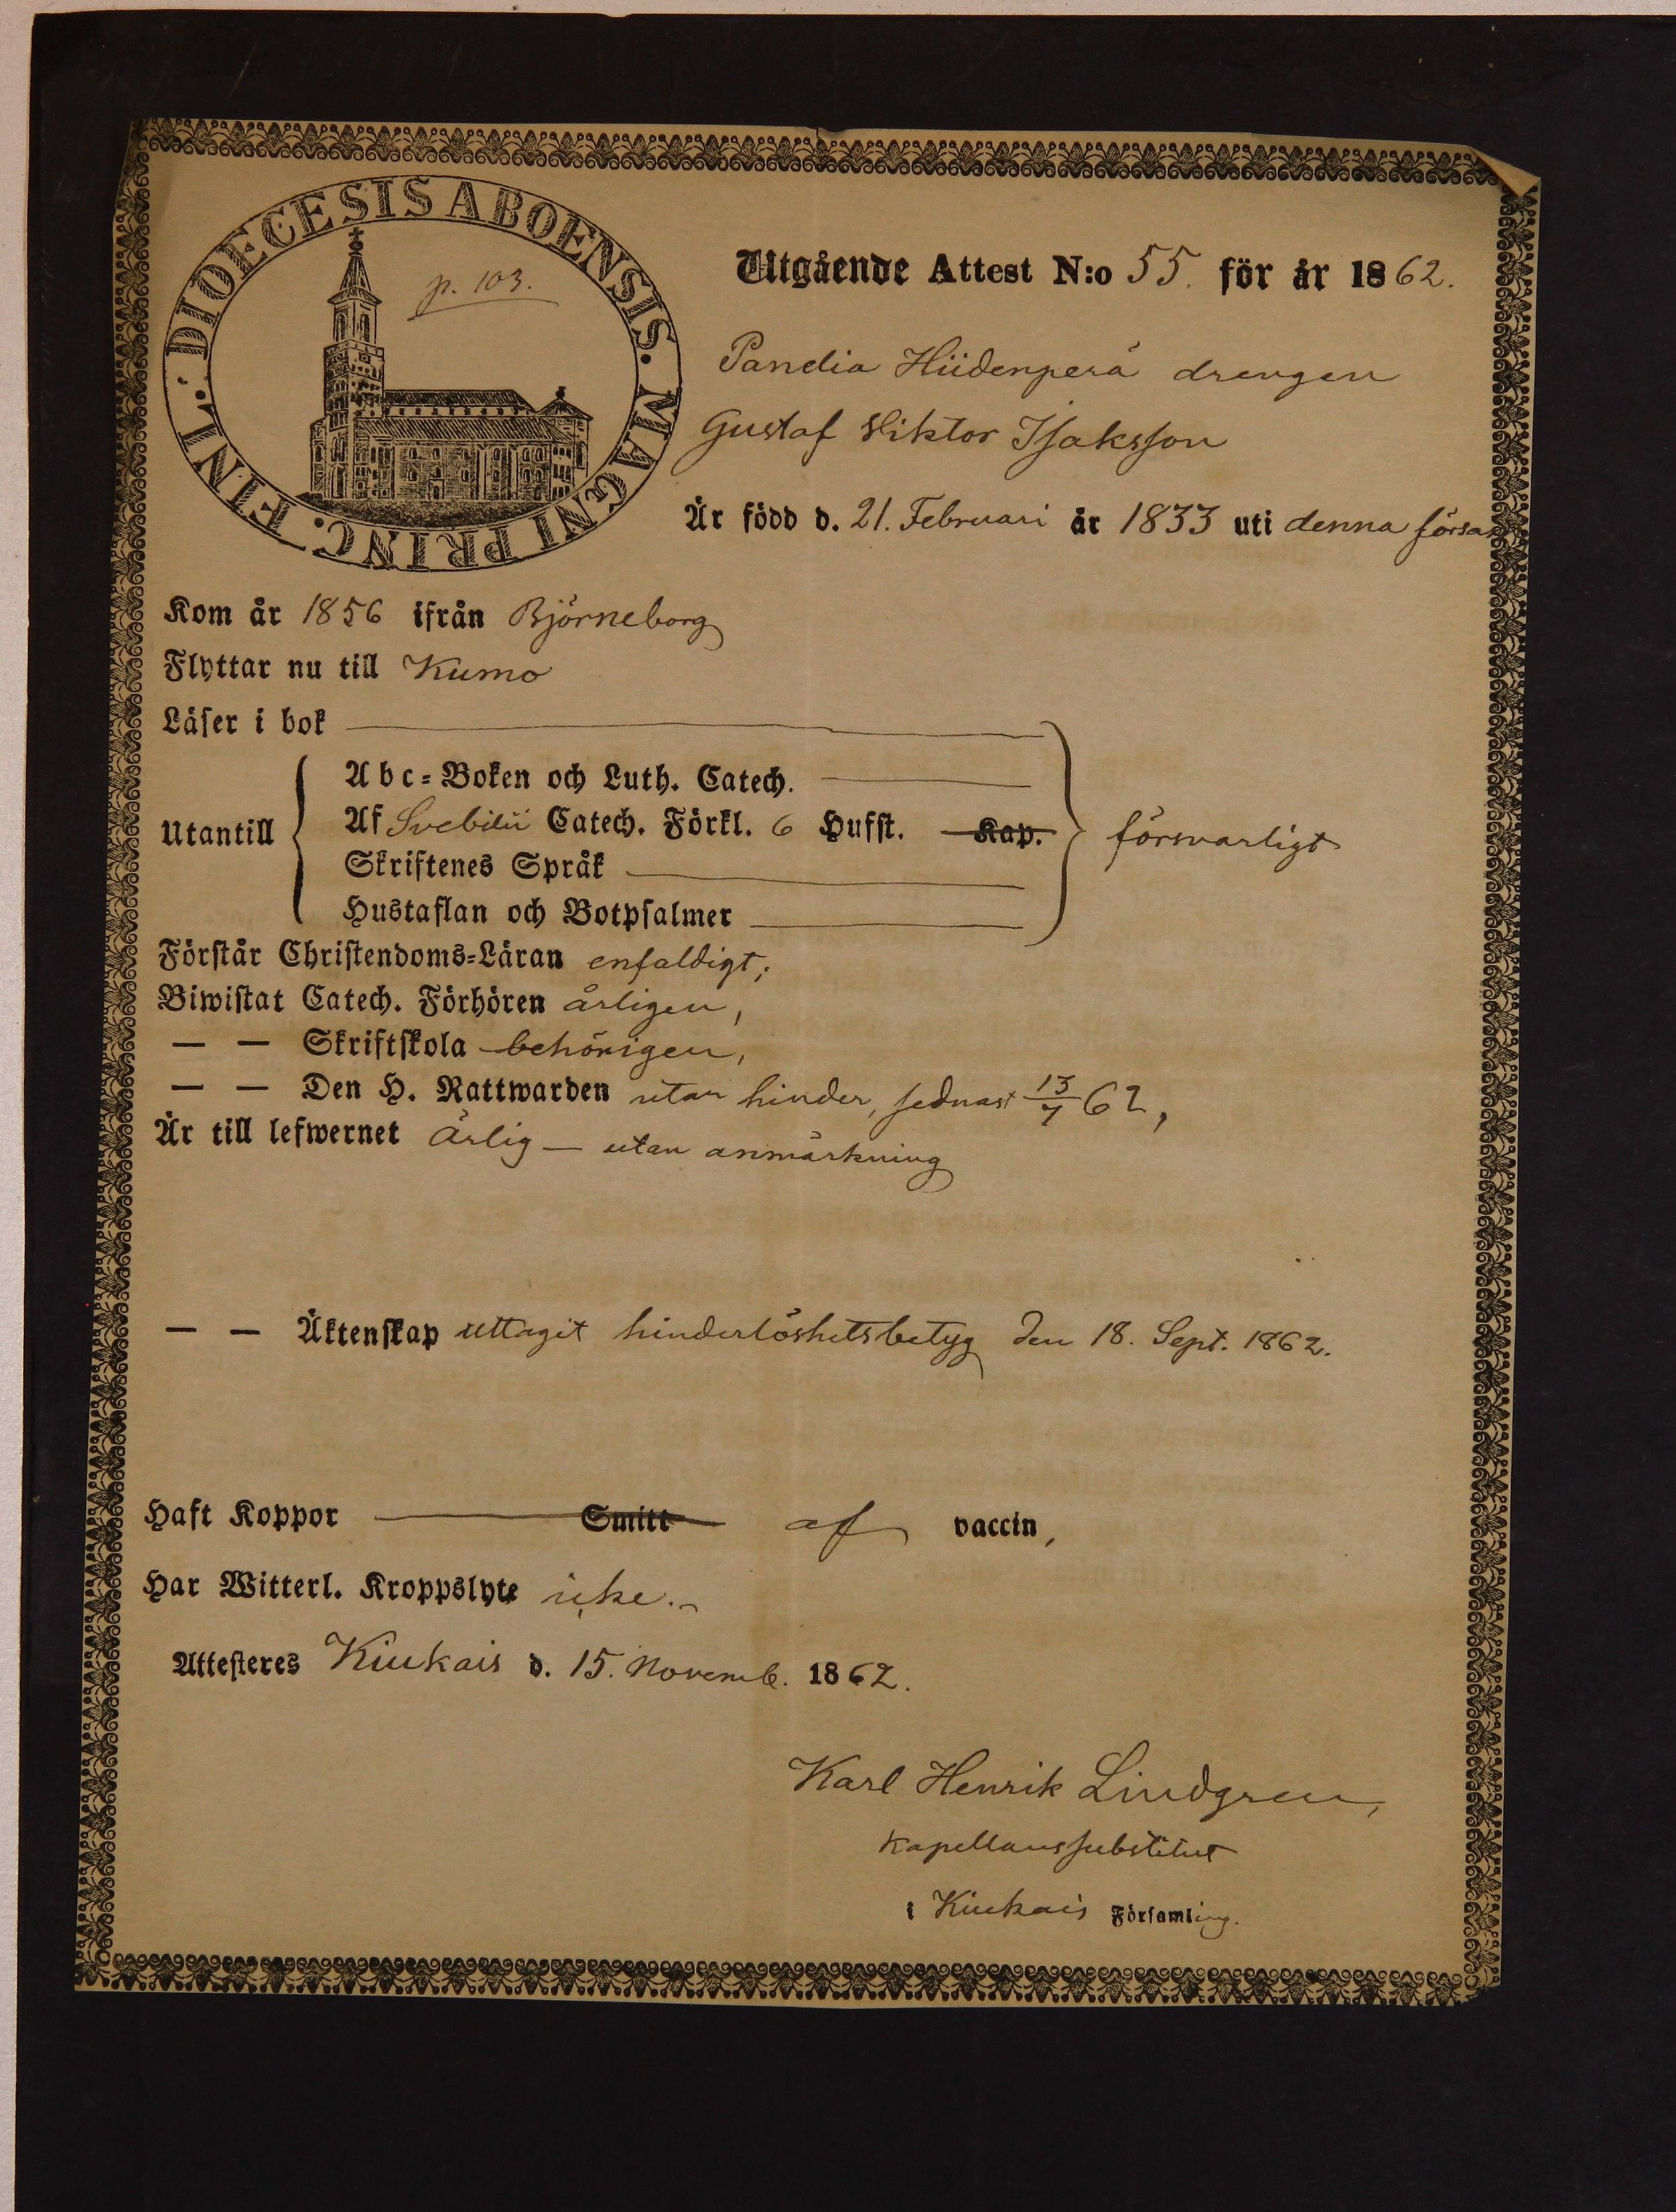 DIOECESIS ABOENSIS. MAGNI PRINC. FINL.
p. 103.
Utgående Attest N:o 55. för år 1862.
Panelia Hiidenperä drengen
Gustaf Viktor Isaksson
Är född d. 21. Februari år 1833 uti denna försa
Kom år 1856 ifrån Björneborg
Flyttar nu till Kumo
Läser i bok
Utantill
Abc-Boken och Luth. Catech.
Af Svebilii Catech. Förkl. 6 Hufst. Kap.
försvarligt
Skriftenes Språk
Hustaflan och Botpsalmer
Förstår Christendoms-Läran enfaldigt;
Biwistat Catech. Förhören årligen,
— — Skriftskola behörigen,
— — Den H. Nattwarden utan hinder, sednast 13/7 62,
Är till lefwernet ärlig — utan anmärkning
— — Äktenskap uttagit hinderlöshetsbetyg den 18. Sept. 1862.
Haft Koppor Smitt af vaccin,
Har Witterl. Kroppslyte icke.
Attesteres Kiukais d. 15. Novemb. 1862.
Karl Henrik Lindgren,
Kapellanssubstitut
i Kiukais Församling.